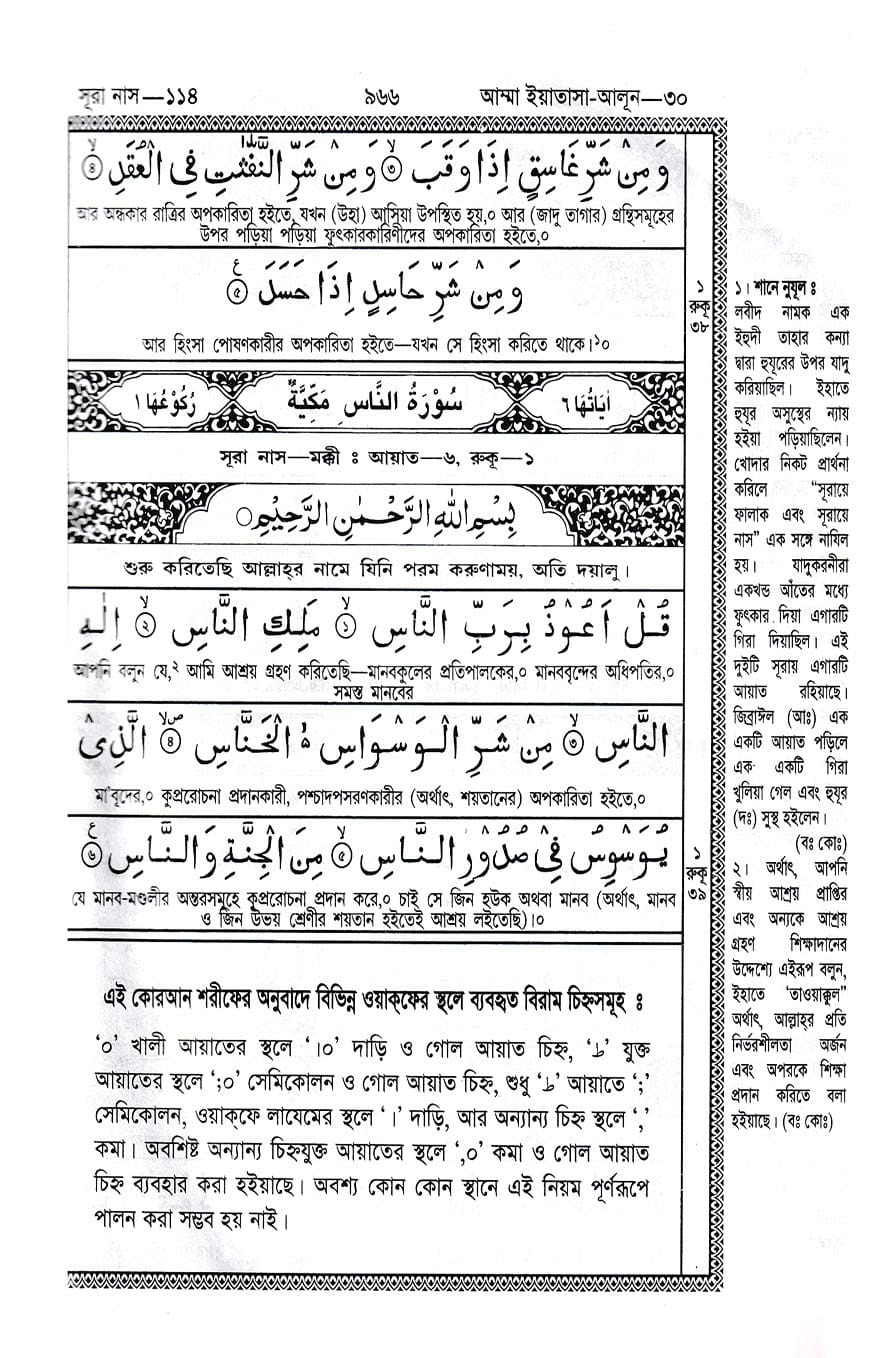 সূরা নাস—১১৪ ৯৬৬ আম্মা ইয়াতাসা-আলূন—৩০
وَمِنْ شَرِّ غَاسِقٍ اِذَا وَقَبَ ۙ﴿۳﴾ وَمِنْ شَرِّ النَّفّٰثٰتِ فِی الْعُقَدِ ۙ﴿۴﴾
আর অন্ধকার রাত্রির অপকারিতা হইতে, যখন (উহা) আসিয়া উপস্থিত হয়,০ আর (জাদু তাগার) গ্রন্থিসমূহের
উপর পড়িয়া পড়িয়া ফুৎকারকারিণীদের অপকারিতা হইতে,০
وَمِنْ شَرِّ حَاسِدٍ اِذَا حَسَدَ ﴿۵﴾ ع
আর হিংসা পোষণকারীর অপকারিতা হইতে—যখন সে হিংসা করিতে থাকে।১০
اٰیَاتُهَا ٦ سُوْرَةُ النَّاسِ مَكِّيَّةٌ رُكُوْعُهَا ١
সূরা নাস—মক্কী ঃ আয়াত—৬, রুকূ—১
بِسْمِ اللّٰهِ الرَّحْمٰنِ الرَّحِیْمِ ○
শুরু করিতেছি আল্লাহ্‌র নামে যিনি পরম করুণাময়, অতি দয়ালু।
قُلْ اَعُوْذُ بِرَبِّ النَّاسِ ۙ﴿۱﴾ مَلِكِ النَّاسِ ۙ﴿۲﴾ اِلٰهِ
আপনি বলুন যে,২ আমি আশ্রয় গ্রহণ করিতেছি—মানবকুলের প্রতিপালকের,০ মানববৃন্দের অধিপতির,০
সমস্ত মানবের
النَّاسِ ۙ﴿۳﴾ مِنْ شَرِّ الْوَسْوَاسِ ۬ۙ الْخَنَّاسِ ۪ۙ﴿۴﴾ الَّذِیْ
মা'বূদের,০ কুপ্ররোচনা প্রদানকারী, পশ্চাদপসরণকারীর (অর্থাৎ, শয়তানের) অপকারিতা হইতে,০
یُوَسْوِسُ فِیْ صُدُوْرِ النَّاسِ ۙ﴿۵﴾ مِنَ الْجِنَّةِ وَالنَّاسِ ﴿۶﴾ ع
যে মানব-মণ্ডলীর অন্তরসমূহে কুপ্ররোচনা প্রদান করে,০ চাই সে জিন হউক অথবা মানব (অর্থাৎ, মানব
ও জিন উভয় শ্রেণীর শয়তান হইতেই আশ্রয় লইতেছি)।০
এই কোরআন শরীফের অনুবাদে বিভিন্ন ওয়াক্‌ফের স্থলে ব্যবহৃত বিরাম চিহ্নসমূহ ঃ
'০' খালী আয়াতের স্থলে '।০' দাড়ি ও গোল আয়াত চিহ্ন, 'ط' যুক্ত
আয়াতের স্থলে ';০' সেমিকোলন ও গোল আয়াত চিহ্ন, শুধু 'ط' আয়াতে ';'
সেমিকোলন, ওয়াক্‌ফে লাযেমের স্থলে '।' দাড়ি, আর অন্যান্য চিহ্ন স্থলে ','
কমা। অবশিষ্ট অন্যান্য চিহ্নযুক্ত আয়াতের স্থলে ',০' কমা ও গোল আয়াত
চিহ্ন ব্যবহার করা হইয়াছে। অবশ্য কোন কোন স্থানে এই নিয়ম পূর্ণরূপে
পালন করা সম্ভব হয় নাই।
১
রুকূ
৩৮
১
রুকূ
৩৯
১। শানে নুযূল ঃ
লবীদ নামক এক
ইহুদী তাহার কন্যা
দ্বারা হুযূরের উপর যাদু
করিয়াছিল। ইহাতে
হুযূর অসুস্থের ন্যায়
হইয়া পড়িয়াছিলেন।
খোদার নিকট প্রার্থনা
করিলে "সূরায়ে
ফালাক এবং সূরায়ে
নাস" এক সঙ্গে নাযিল
হয়। যাদুকরনীরা
একখন্ড আঁতের মধ্যে
ফুৎকার দিয়া এগারটি
গিরা দিয়াছিল। এই
দুইটি সূরায় এগারটি
আয়াত রহিয়াছে।
জিব্রাঈল (আঃ) এক
একটি আয়াত পড়িলে
এক একটি গিরা
খুলিয়া গেল এবং হুযূর
(দঃ) সুস্থ হইলেন।
(বঃ কোঃ)
২। অর্থাৎ, আপনি
স্বীয় আশ্রয় প্রাপ্তির
এবং অন্যকে আশ্রয়
গ্রহণ শিক্ষাদানের
উদ্দেশ্যে এইরূপ বলুন,
ইহাতে 'তাওয়াক্কুল"
অর্থাৎ, আল্লাহ্‌র প্রতি
নির্ভরশীলতা অর্জন
এবং অপরকে শিক্ষা
প্রদান করিতে বলা
হইয়াছে। (বঃ কোঃ)